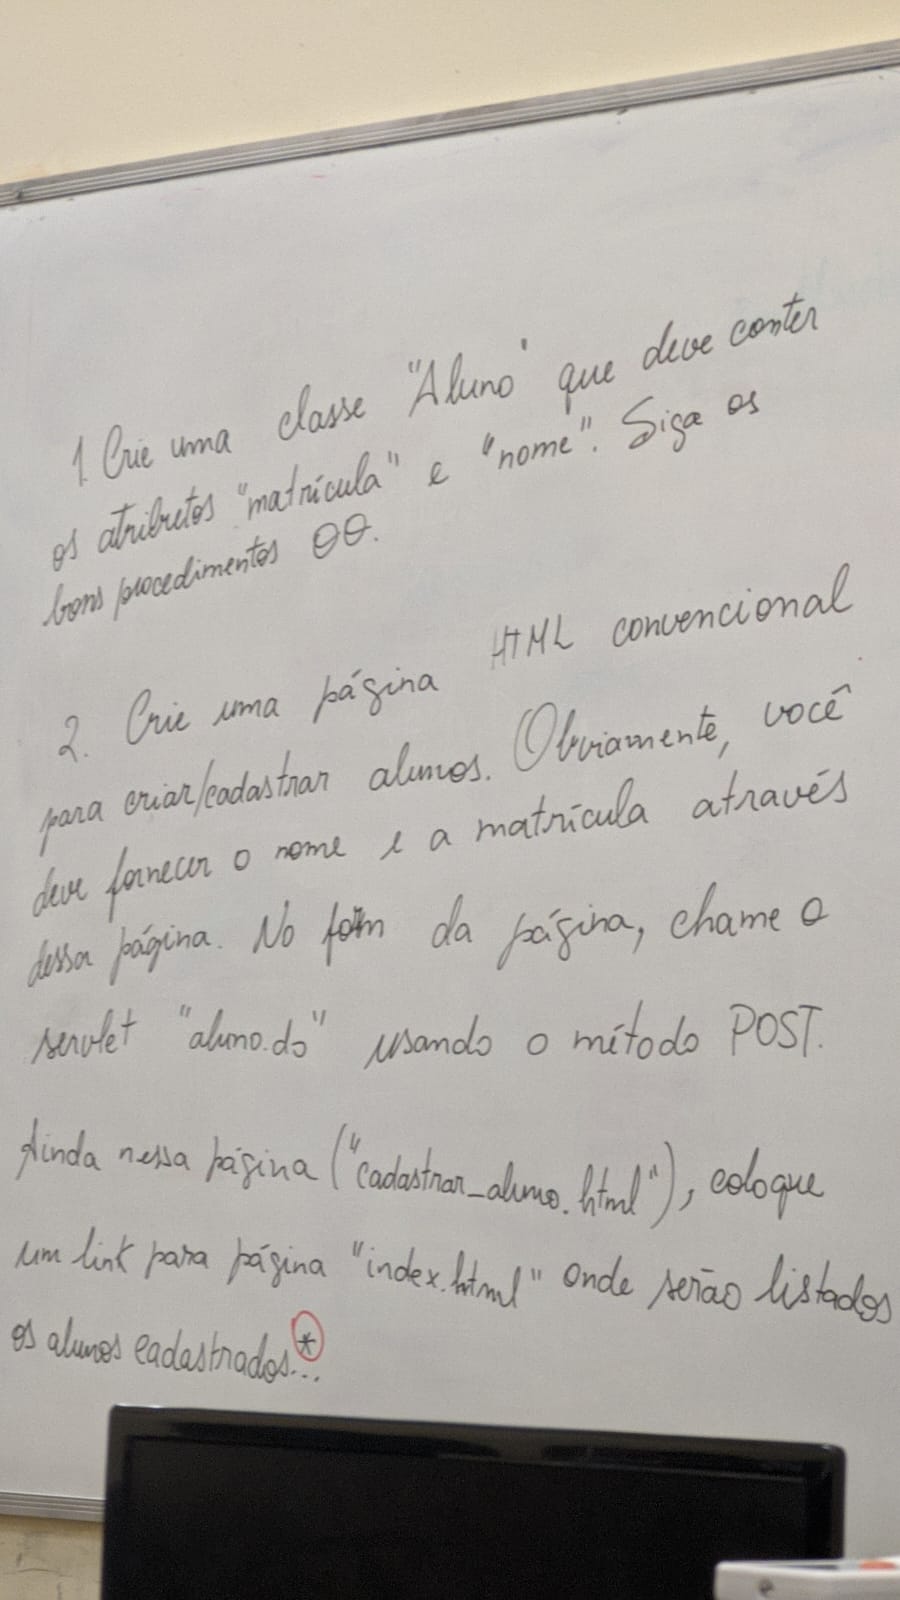 1. Crie uma classe "Aluno" que deve conter
os atributos "matrícula" e "nome". Siga os
bons procedimentos OO.
2. Crie uma página HTML convencional
para criar/cadastrar alunos. Obviamente, você
deve fornecer o nome e a matrícula através
dessa página. No form da página, chame o
servlet "aluno.do" usando o método POST.
Ainda nessa página ("cadastrar_aluno.html"), coloque
um link para página "index.html" onde serão listados
os alunos cadastrados...*